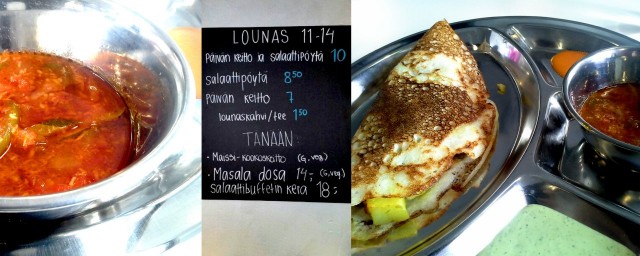 LOUNAS 11-14
päivän keitto ja salaattipöytä 10
salaattipöytä 8⁵⁰
päivän keitto 7
lounaskahvi/tee 1⁵⁰
TÄNÄÄN
• Maissi-kookoskeitto (G, veg)
• Masala dosa 14,- (G, veg)
salaattibuffetin kera 18,-